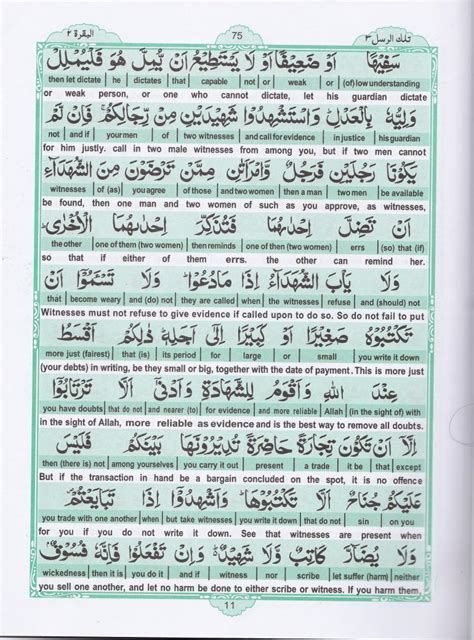 البقرة ٢ 75 تلك الرسل ٣
سَفِيْهًا اَوْ ضَعِيْفًا اَوْ لَا يَسْتَطِيْعُ اَنْ يُّمِلَّ هُوَ فَلْيُمْلِلْ
then let dictate | he | dictates | that | capable | not | or | weak | or | (of) low understanding
or weak person, or one who cannot dictate, let his guardian dictate
وَلِيُّهٗ بِالْعَدْلِ وَاسْتَشْهِدُوْا شَهِيْدَيْنِ مِنْ رِّجَالِكُمْ فَاِنْ لَّمْ
not | and if | your men | of | two witnesses | and call for evidence | in justice | his guardian
for him justly. call in two male witnesses from among you, but if two men cannot
يَكُوْنَا رَجُلَيْنِ فَرَجُلٌ وَّامْرَاَتٰنِ مِمَّنْ تَرْضَوْنَ مِنَ الشُّهَدَآءِ
witnesses | of (as) | you agree | of those | and two women | then a man | two men | be available
be found, then one man and two women of such as you approve, as witnesses,
اَنْ تَضِلَّ اِحْدٰىهُمَا فَتُذَكِّرَ اِحْدٰىهُمَا الْاُخْرٰى
the other | one of them (two women) | then reminds | one of them (two women) | errs | (so) that (if)
so that if either of them errs. the other can remind her.
وَلَا يَاْبَ الشُّهَدَآءُ اِذَا مَا دُعُوْا وَلَا تَسْـَٔمُوْٓا اَنْ
that | become weary | and (do) not | they are called | when | the witnesses | refuse | and (should) not
Witnesses must not refuse to give evidence if called upon to do so. So do not fail to put
تَكْتُبُوْهُ صَغِيْرًا اَوْ كَبِيْرًا اِلٰٓى اَجَلِهٖ ذٰلِكُمْ اَقْسَطُ
more just (fairest) | that (is) | its period | for | large | or | small | you write it down
(your debts) in writing, be they small or big, together with the date of payment. This is more just
عِنْدَ اللّٰهِ وَاَقْوَمُ لِلشَّهَادَةِ وَاَدْنٰٓى اَلَّا تَرْتَابُوْٓا
you have doubts | that do not | and nearer (to) | for evidence | and more reliable | Allah | (in the sight of) with
in the sight of Allah, more reliable as evidence and is the best way to remove all doubts.
اِلَّآ اَنْ تَكُوْنَ تِجَارَةً حَاضِرَةً تُدِيْرُوْنَهَا بَيْنَكُمْ فَلَيْسَ
then (there is) not | among yourselves | you carry it out | present | a trade | it be | that | except
But if the transaction in hand be a bargain concluded on the spot, it is no offence
عَلَيْكُمْ جُنَاحٌ اَلَّا تَكْتُبُوْهَا وَاَشْهِدُوْٓا اِذَا تَبَايَعْتُمْ
you trade with one another | when | but take witnesses | you write it down | that do not | sin | on you
for you if you do not write it down. See that witnesses are present when
وَلَا يُضَآرَّ كَاتِبٌ وَّلَا شَهِيْدٌ وَاِنْ تَفْعَلُوْا فَاِنَّهٗ فُسُوْقٌ
wickedness | then it is | you do it | and if | witness | nor | scribe | let suffer (harm) | neither
you sell one another, and let no harm be done to either scribe or witness. If you do harm
11